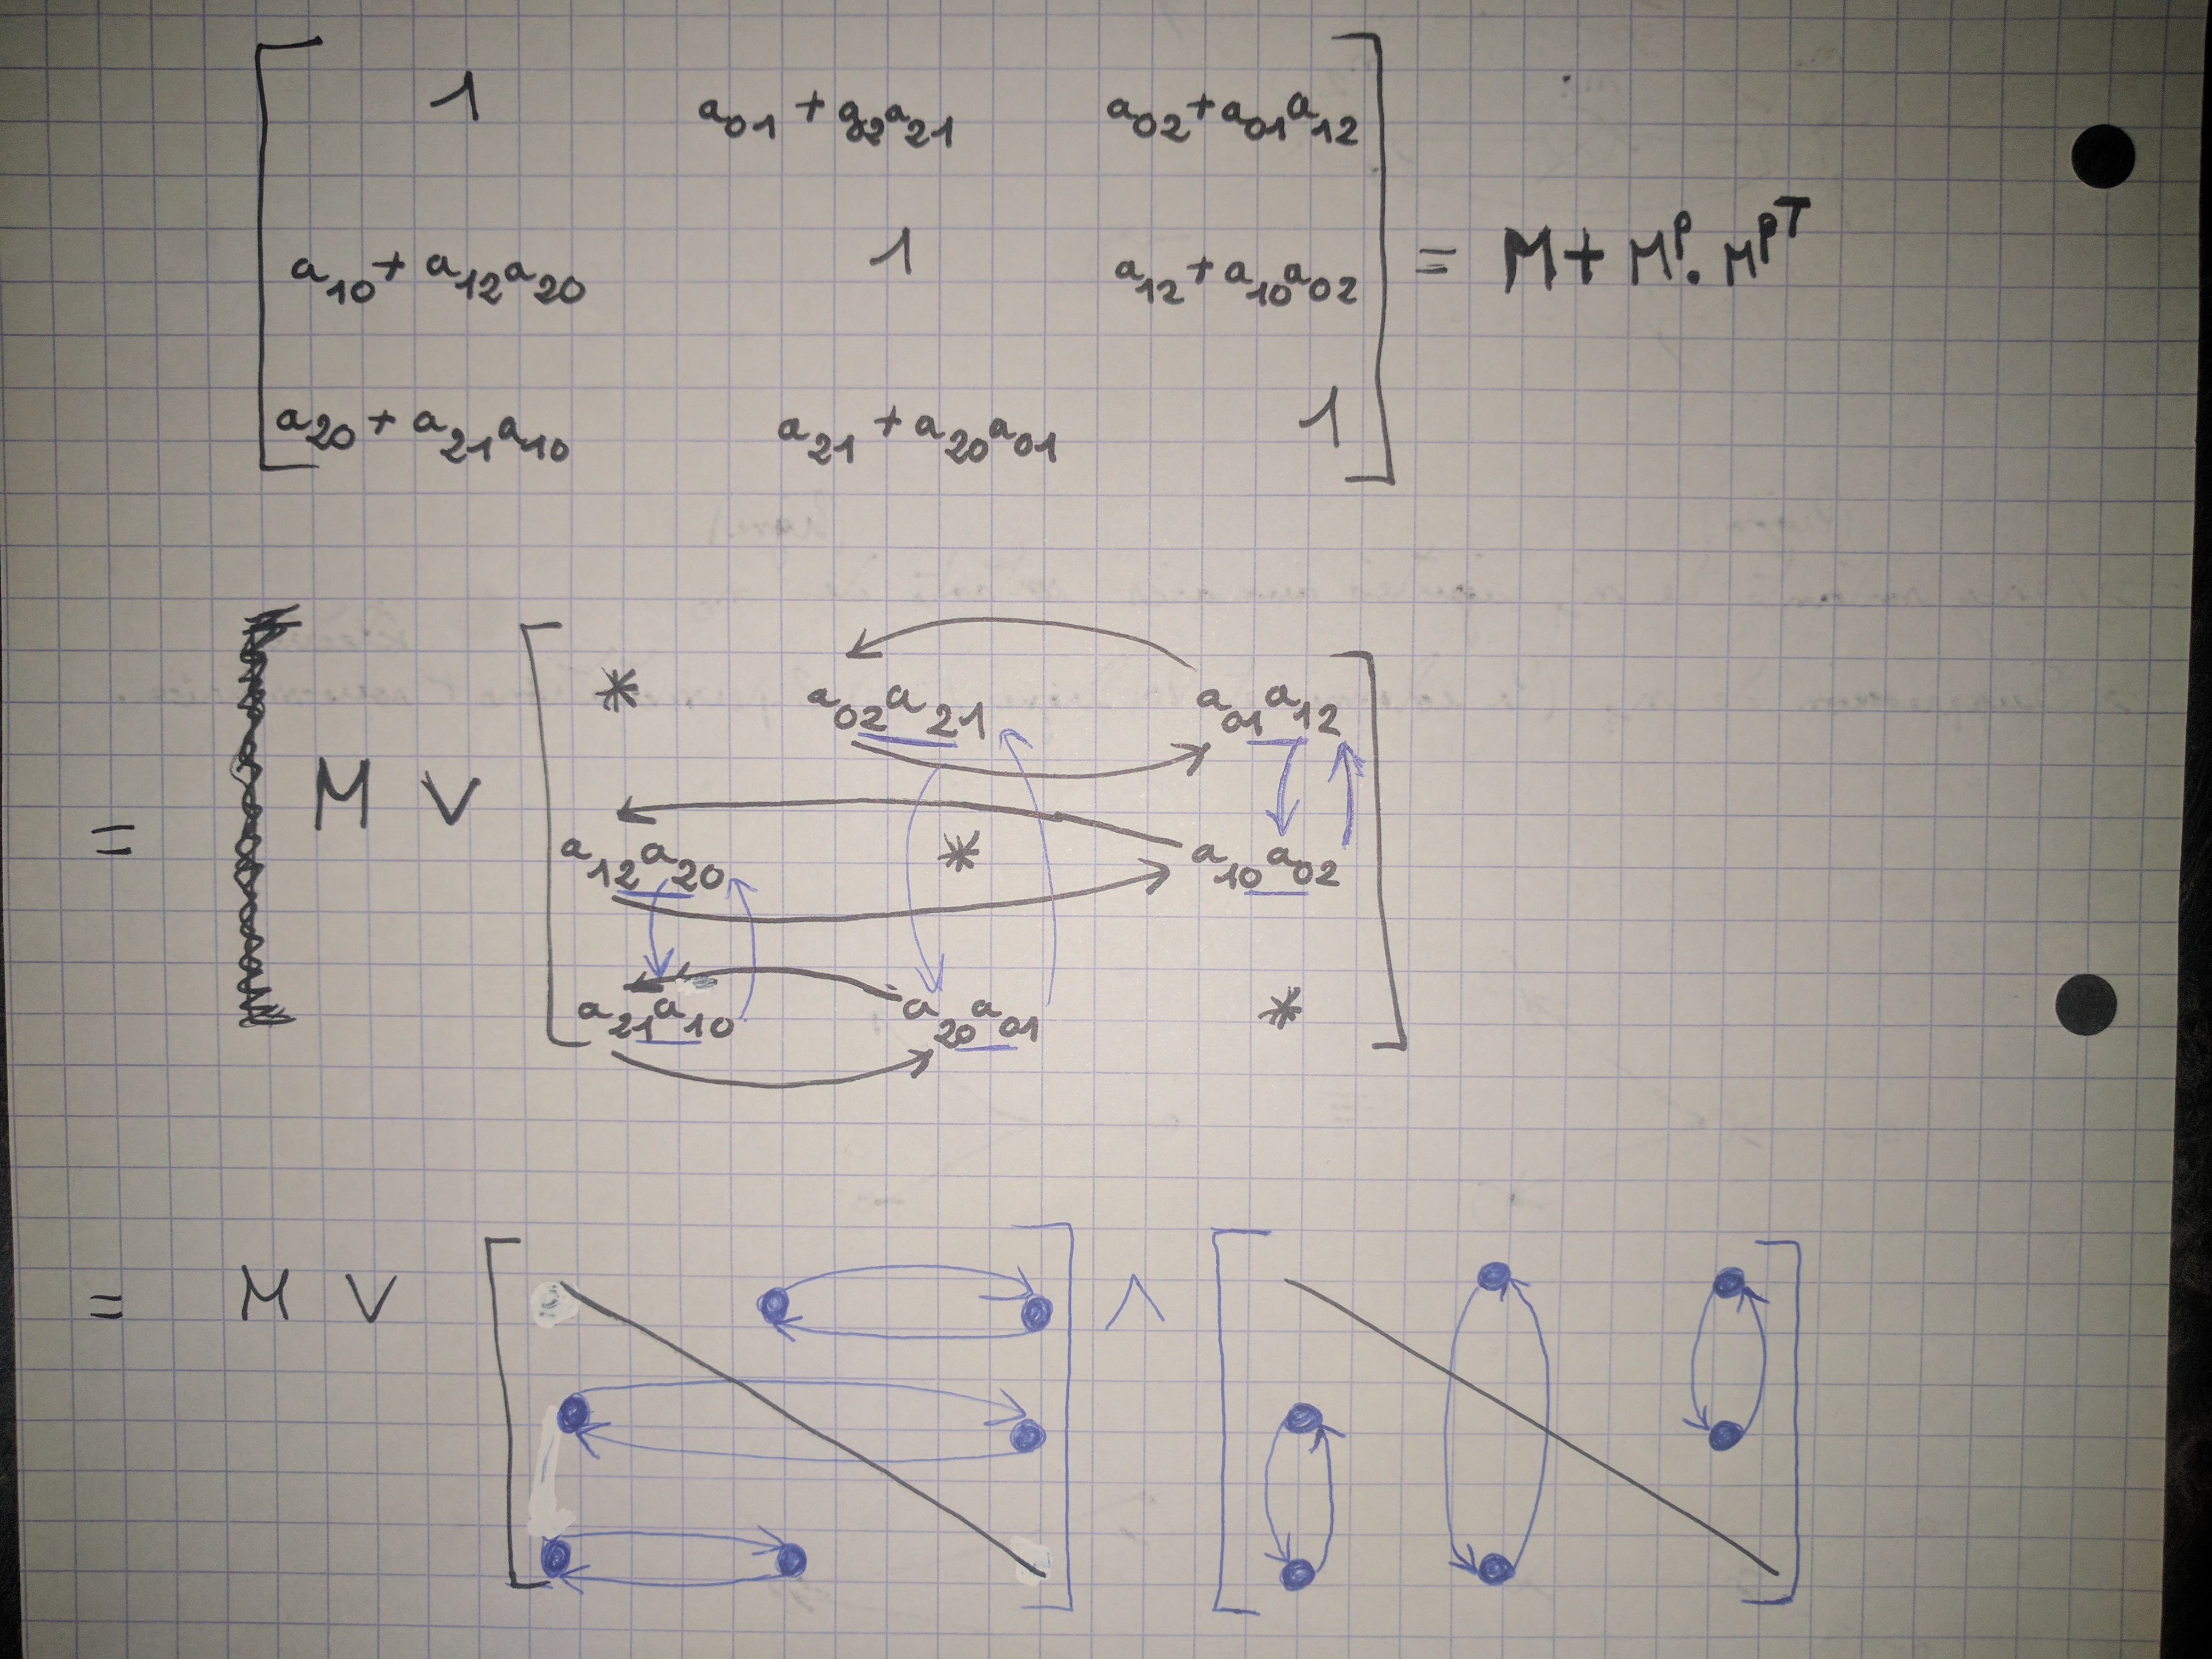 1 a01 + a02a21 a02 + a01a12
a10 + a12a20 1 a12 + a10a02 = M + Mᵖ . Mᵖᵀ
a20 + a21a10 a21 + a20a01 1
* a02a21 a01a12
= M ∨ a12a20 * a10a02
a21a10 a20a01 *
= M ∨ ∧